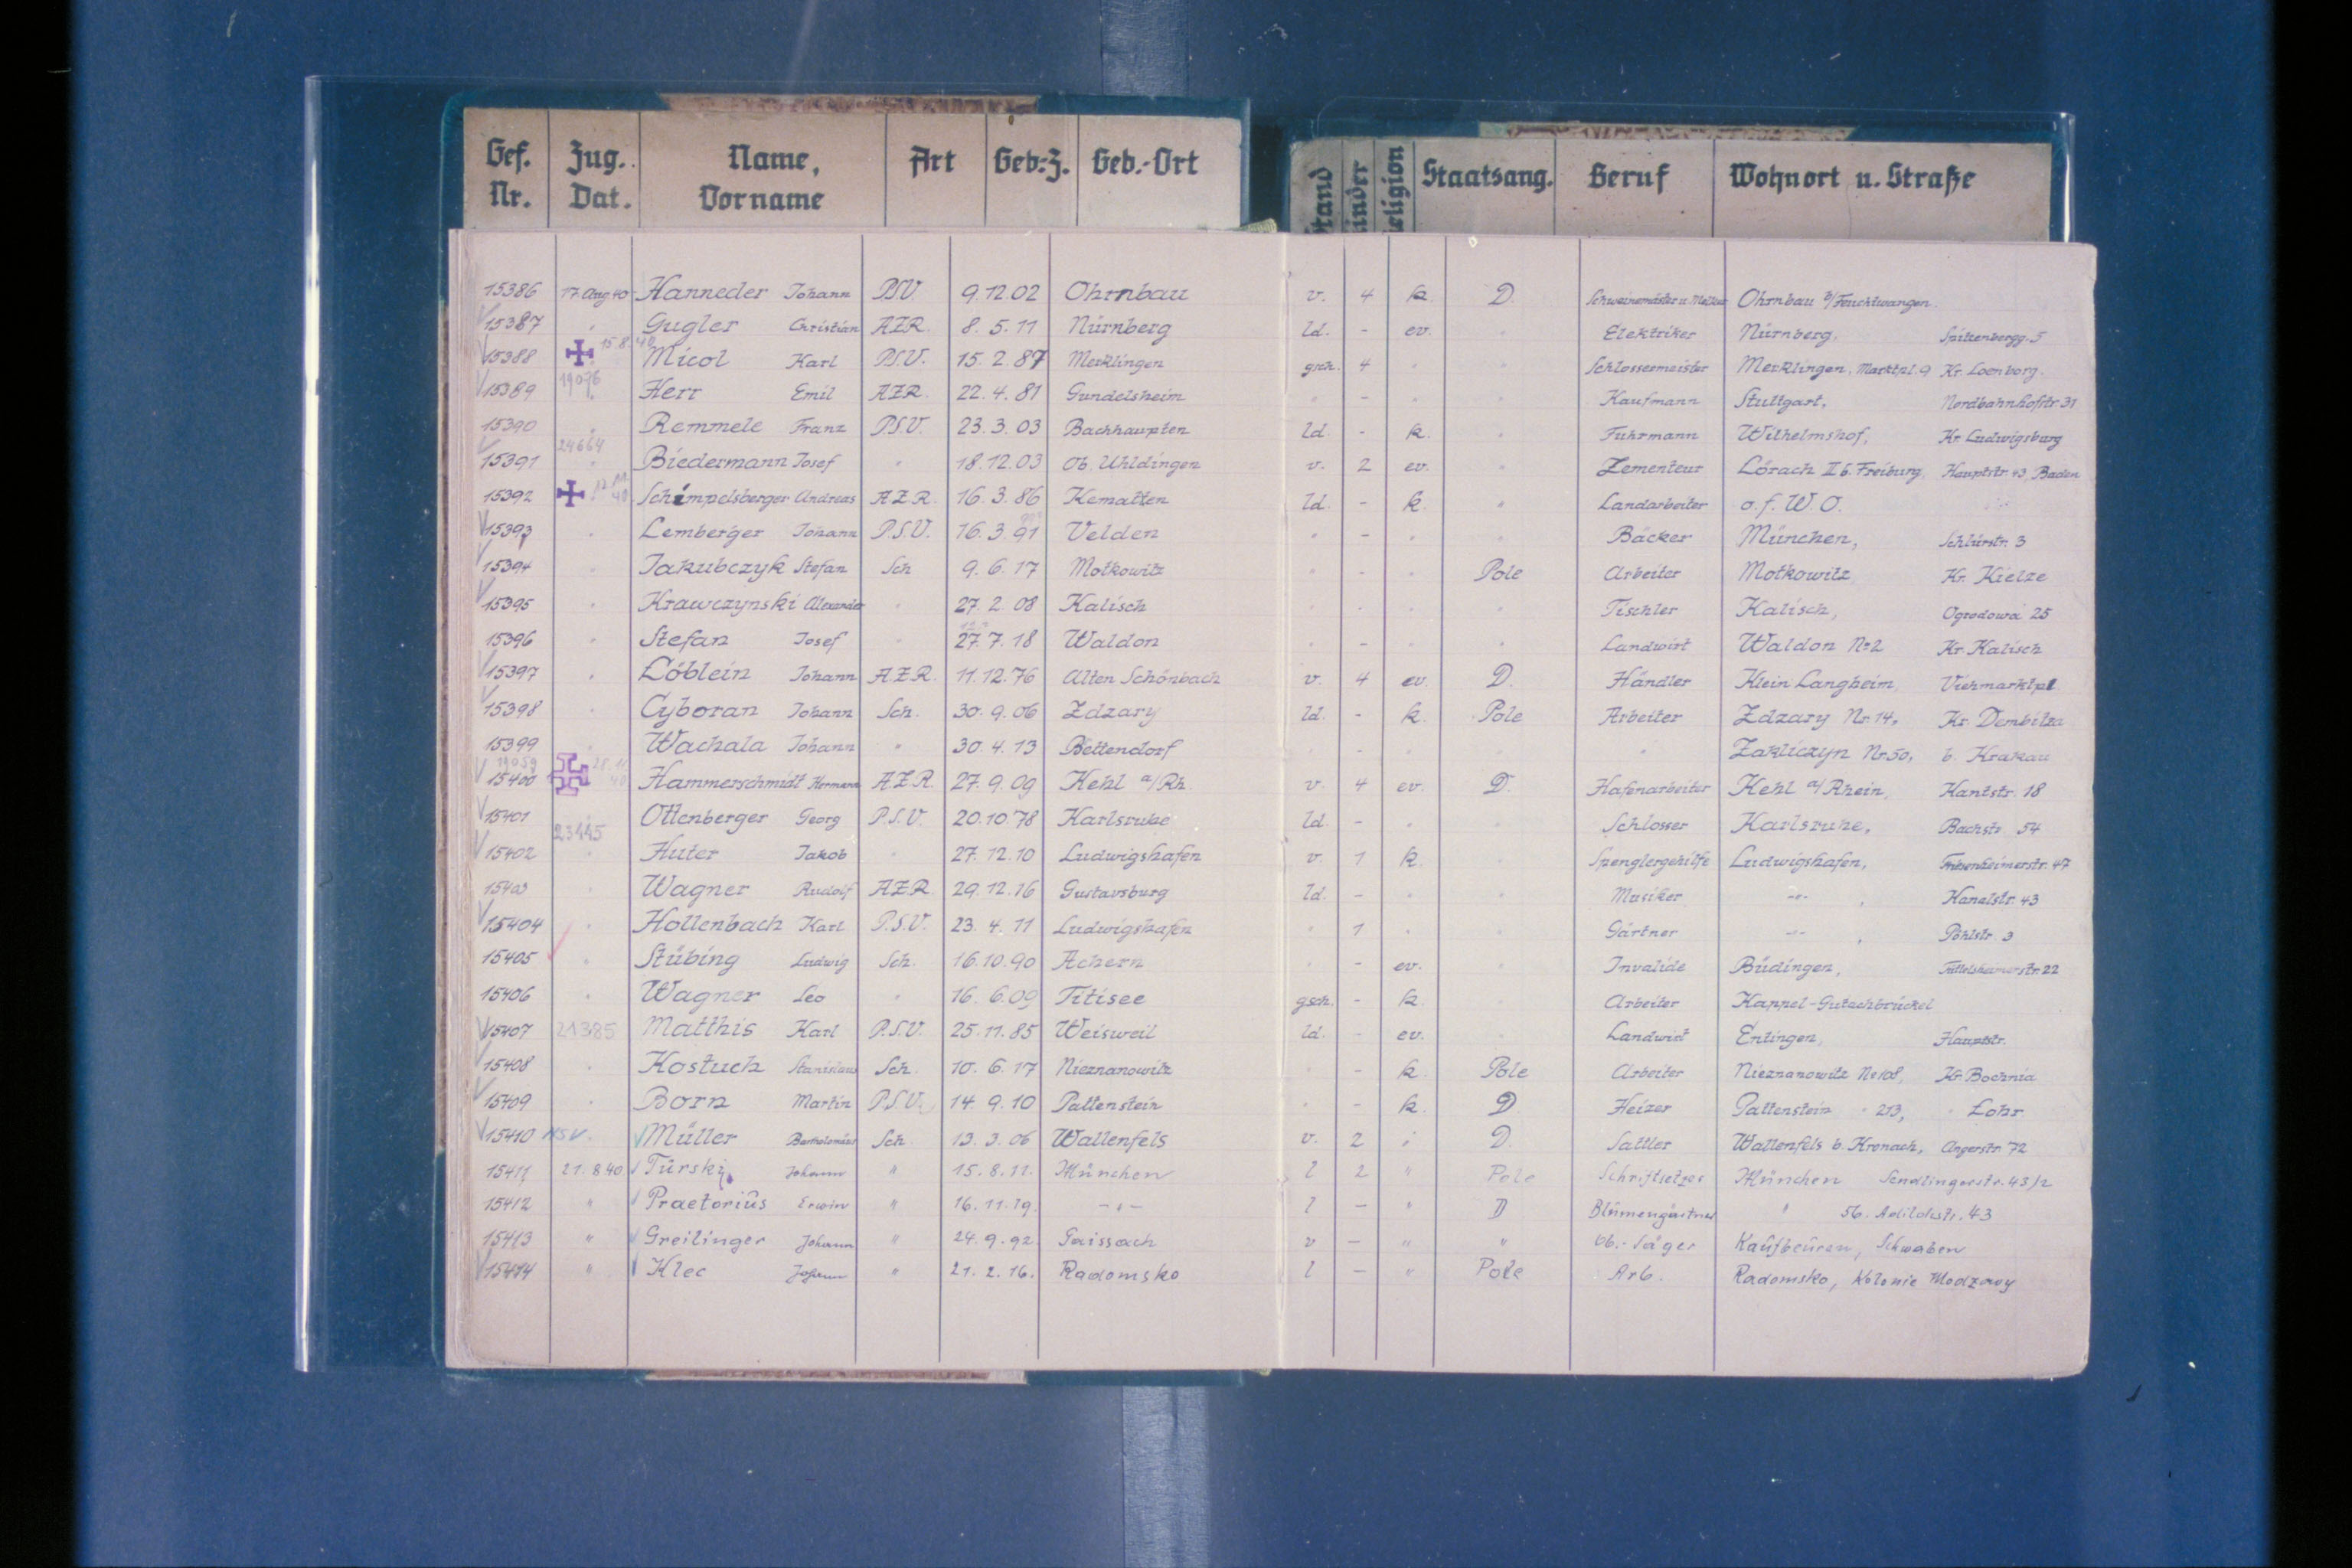 Gef. Nr. Zug. Dat. Name, Vorname Art Geb.-Z. Geb.-Ort Stand Kinder Religion Staatsang. Beruf Wohnort u. Straße
15386 17. Aug 40 Hanneder Johann PSV. 9.12.02 Ohrnbau v. 4 k. D. Schweinemäster u. Melker Ohrnbau b/Feuchtwangen.
15387 " Gugler Christian AZR. 8.5.11 Nürnberg ld. - ev. " Elektriker Nürnberg, Spittenbergg. 5
15388 15.8.40 Micol Karl P.S.V. 15.2.87 Merklingen gsch. 4 " " Schlossermeister Merklingen, Marktpl. 9 Kr. Loenborg.
15389 19076 " Herr Emil AZR. 22.4.81 Gundelsheim " - " " Kaufmann Stuttgart, Nordbahnhofstr 31
15390 " Remmele Franz P.S.V. 23.3.03 Bachhaupten ld. - k. " Fuhrmann Wilhelmshof, Kr. Ludwigsburg
15391 24664 " Biedermann Josef " 18.12.03 Ob. Uhldingen v. 2 ev. " Zementeur Lörach II b. Freiburg, Hauptstr. 43, Baden
15392 40 Schimpelsberger Andreas A.Z.R. 16.3.86 Kematten ld. - k. " Landarbeiter o.f.W.O.
15393 " Lemberger Johann P.S.V. 16.3.91 Velden " - " " Bäcker München, 3
15394 " Jakubczyk Stefan Sch 9.6.17 Motkowitz " - " Pole Arbeiter Motkowitz, Kr. Kielze
15395 " Krawczynski Alexander " 27.2.08 Kalisch " " " " Tischler Kalisch, Ogrodowa 25
15396 " Stefan Josef " 27.7.18 Waldon " - " " Landwirt Waldon No 2 Kr. Kalisch
15397 " Löblein Johann A.Z.R. 11.12.76 Alten Schönbach v. 4 ev. D. Händler Klein Langheim, Viehmarktpl
15398 " Cyboran Johann Sch. 30.9.06 Zdzary ld. - k. Pole Arbeiter Zdzary Nr. 14, Kr. Dembitza
15399 " Wachala Johann " 30.4.13 Bettendorf " - " " " Zakliczyn Nr. 50, b. Krakau
15400 19059 28.11.40 Hammerschmidt Hermann A.Z.R. 27.9.09 Kehl a/Rh. v. 4 ev. D. Hafenarbeiter Kehl a/Rhein, Kantstr. 18
15401 " Ottenberger Georg P.S.V. 20.10.78 Karlsruhe ld. - " " Schlosser Karlsruhe, Bachstr. 54
15402 23445 " Huter Jakob " 27.12.10 Ludwigshafen v. 1 k. " Spenglergehilfe Ludwigshafen, 47
15403 " Wagner Rudolf AZR. 29.12.16 Gustavsburg ld. - " " Musiker -"- , Kanalstr. 43
15404 " Hollenbach Karl P.S.V. 23.4.11 Ludwigshafen " 1 " " Gärtner -"- , Pöhlstr. 3
15405 " Stübing Ludwig Sch. 16.10.90 Achern " - ev. " Invalide Büdingen, 22
15406 " Wagner Leo " 16.6.09 Titisee gsch. - k. " Arbeiter Kappel-Gutachbrückel
15407 21385 Matthis Karl P.S.V. 25.11.85 Weisweil ld. - ev. " Landwirt Entingen, Hauptstr.
15408 " Kostuch Stanislaus Sch. 10.6.17 Nieznanowitz " - k. Pole Arbeiter Nieznanowitz No 108, Kr. Bochnia
15409 " Born Martin P.S.V. 14.9.10 Pattenstein " - k. D Heizer Pattenstein " 213, " Lohr
15410 NSV. Müller Bartholomäus Sch. 13.3.06 Wallenfels v. 2 " D. Sattler Wallenfels b. Kronach, Angerstr. 72
15411 21.8 40 Turski Johann " 15.8.11. München l 2 " Pole Schriftsetzer München Sendlingerstr. 43/2
15412 " Praetorius Erwin " 16.11.19. -"- l - " D Blumengärtner " 56. 43
15413 " Greilinger Johann " 24.9.92. Gaissach v - " " Ob.-Säger Kaufbeuren, Schwaben
15414 " Klec Johann " 21.2.16. Radomsko l - " Pole Arb. Radomsko, Kolonie Modzowy